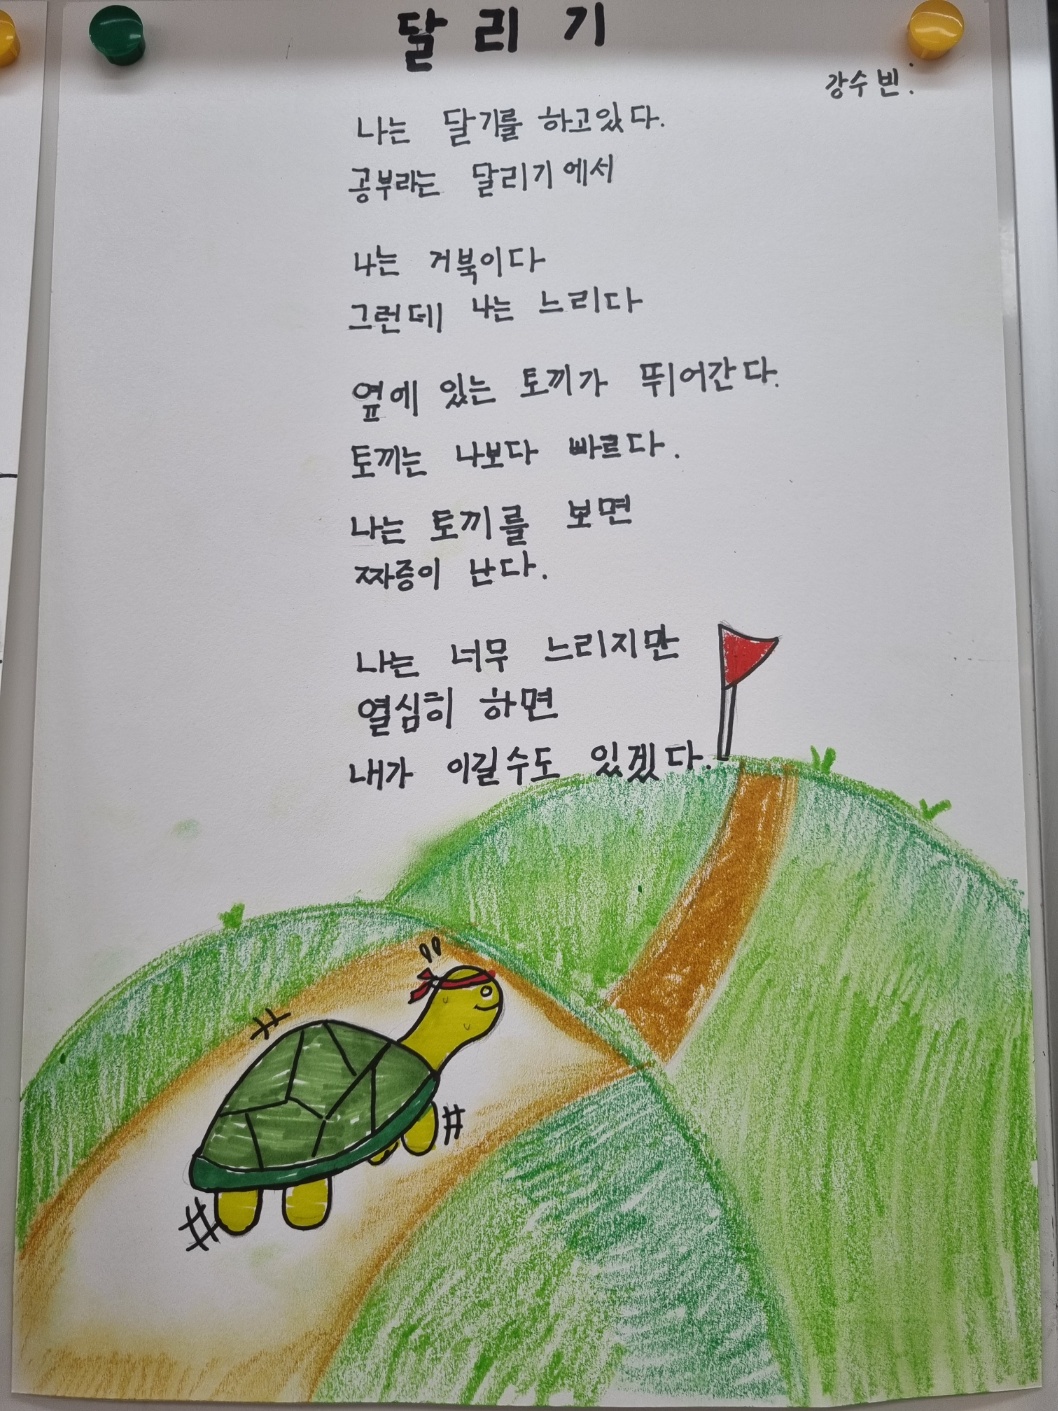 달리기
강수빈
나는 달기를 하고있다.
공부라는 달리기에서
나는 거북이다
그런데 나는 느리다
옆에 있는 토끼가 뛰어간다.
토끼는 나보다 빠르다.
나는 토끼를 보면
짜증이 난다.
나는 너무 느리지만
열심히 하면
내가 이길수도 있겠다.